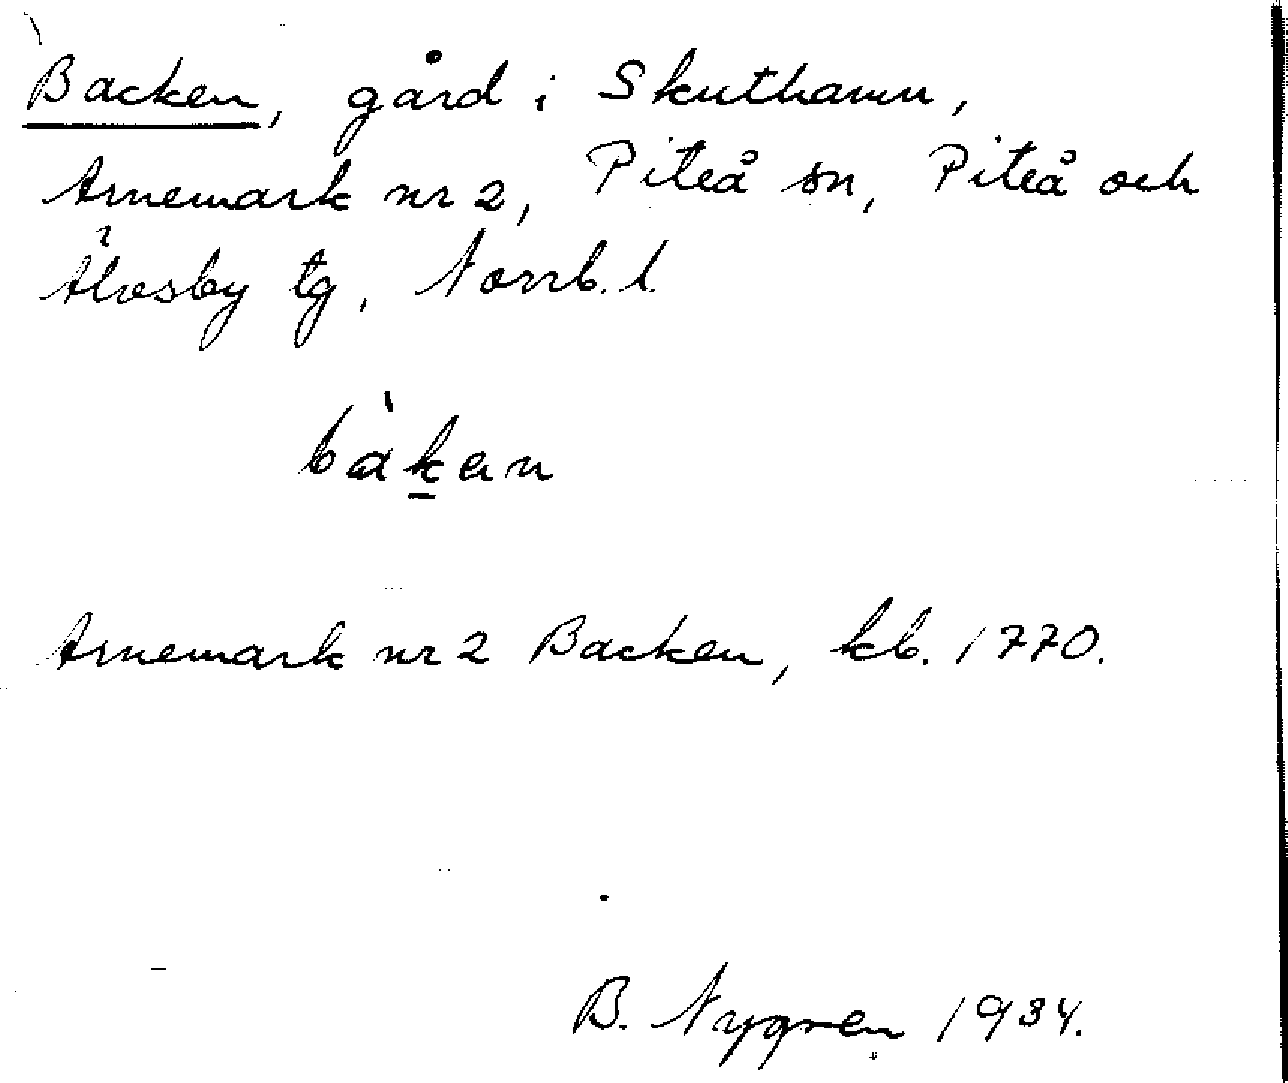 Backen, gård i Skuthamn,
Arnemark nr 2, Piteå sn, Piteå och
Älvsby tg, Norrb. l.
bàk̲en
Arnemark nr 2 Backen, kb. 1770.
B. Nygren 1934.